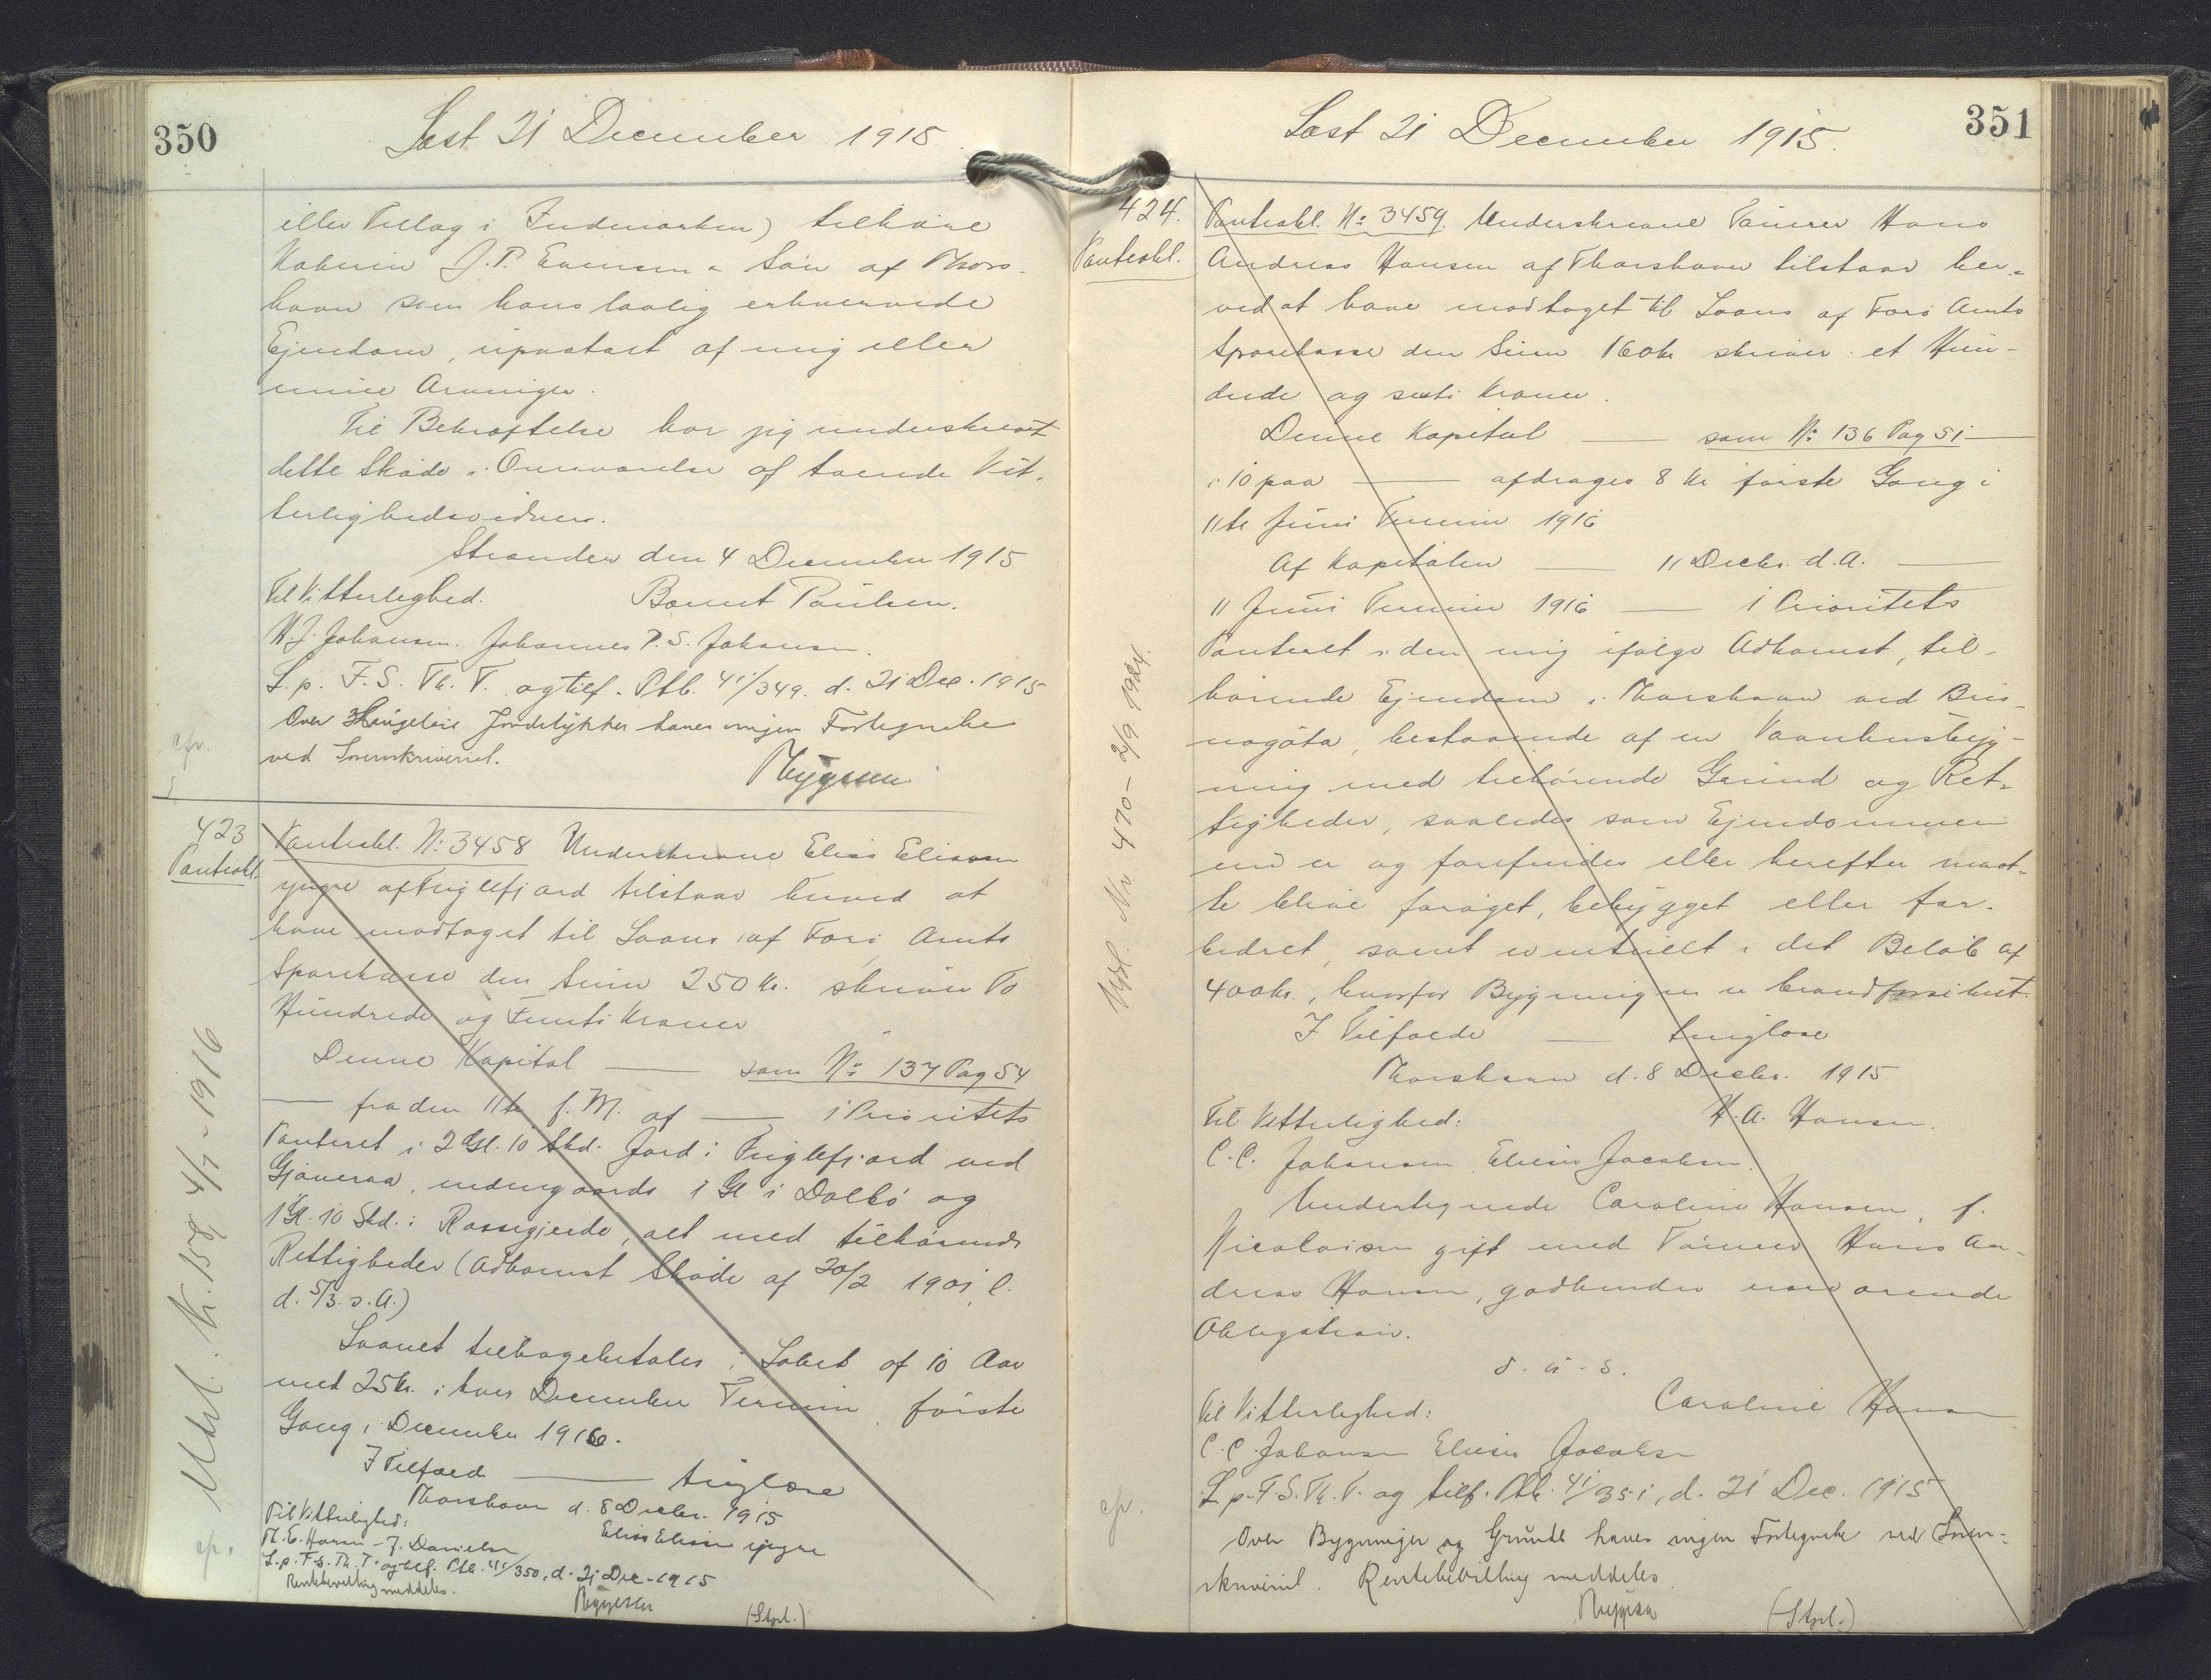 350
Læst 21 December 1915
eller Tillag i Indmarken) tilhøre
Køberen J. P. Evensen & Søn af Thors-
havn som hans lovlig erhvervede
Ejendom, upaatalt af mig eller
mine Arvinger.
Til Bekræftelse har jeg underskrevet
dette Skøde i Overværelse af tvende Vit-
terlighedsvidner.
Strander den 4 December 1915
Til Vitterlighed. Poulsen.
H. J. Johansen. Johannes P. S. Johansen.
L. p. F. S. Th. T. og tilf. Ptb. 41/349. d. 21 Dec. 1915
Over Jordstykker haves ingen Fortegnelse
ved Sorenskriveriet.
cfr.
423
Panteobl.
Panteobl. No 3458 Underskrevne Elias Eliasen
yngre af Fuglefjord tilstaar herved at
have modtaget til Laans af Færø Amts
Sparekasse den Sum 250 Kr. skriver To
Hundrede og Femti Kroner
Denne Kapital — som No 137 Pag 54
— fra den 11te f. M. af — 1 Prioritets
Panteret i 2 Gl. 10 Skd. Jord i Fuglefjord ved
Gjøveraa, indengaards 1 Gl. i Dalbø og
1 Gl. 10 Skd. i Rossegjerde, alt med tilhørende
Rettigheder (Adkomst Skøde af 20/2 1901 l.
d. 5/3. s. A.)
Laanet tilbagebetales i Løbet af 10 Aar
med 25 Kr. i hver December Termin, første
Gang i December 1916.
I Tilfælde — tinglæse
Thorshavn d. 8 Decbr. 1915
Til Vitterlighed: Elias Eliasen yngre
M. E. Hansen - J. Danielsen
L. p. F. S. Th. T. og tilf. Ptb. 41/350, d. 21 Dec. 1915
Rentebevilling meddeles.
(Stpl.)
Udsl. Nr. 158 4/7 - 1916
cfr.
351
Læst 21 December 1915.
424.
Panteobl.
Panteobl. No 3459. Underskrevne Tømrer Hans
Andreas Hansen af Thorshavn tilstaar her-
ved at have modtaget til Laans af Færø Amts
Sparekasse den Sum 160 kr skriver: et Hun-
drede og seksti Kroner.
Denne Kapital — som No 136 Pag 51 —
i 10 paa — afdrages 8 Kr første Gang i
11te Juni Termin 1916
Af Kapitalen — 11 Decbr. d. A. —
11 Juni Termin 1916 — 1 Prioritets
Panteret i den mig ifølge Adkomst, til-
hørende Ejendom i Thorshavn ved
bestaaende af en Vaanhusbyg-
ning med tilhørende Grund og Ret-
tigheder, saaledes som Ejendommen
nu er og forefindes eller herefter maat-
te blive forøget, bebygget eller for-
bedret, samt eventuelt i det Beløb af
400 kr., hvorfor Bygningen er brandforsikret.
I Tilfælde — tinglæse
Thorshavn d. 8 Decbr. 1915
Til Vitterlighed: H. A. Hansen.
C. C. Johansen. Eliesar Jacobsen.
Undertegnede Caroline Hansen, f.
Nicolaisen gift med Tømrer Hans An-
dreas Hansen, godkender nærværende
Obligation.
d. u. s.
Til Vitterlighed: Caroline Hansen
C. C. Johansen Eliesar Jacobsen
L. p. F. S. Th. T. og tilf. Ptb. 41/351, d. 21 Dec. 1915
Over Bygninger og Grunde haves ingen Fortegnelse ved Soren-
skriveriet. Rentebevilling meddeles.
(Stpl.)
Udsl. Nr. 470 - 2/9 1924.
cfr.